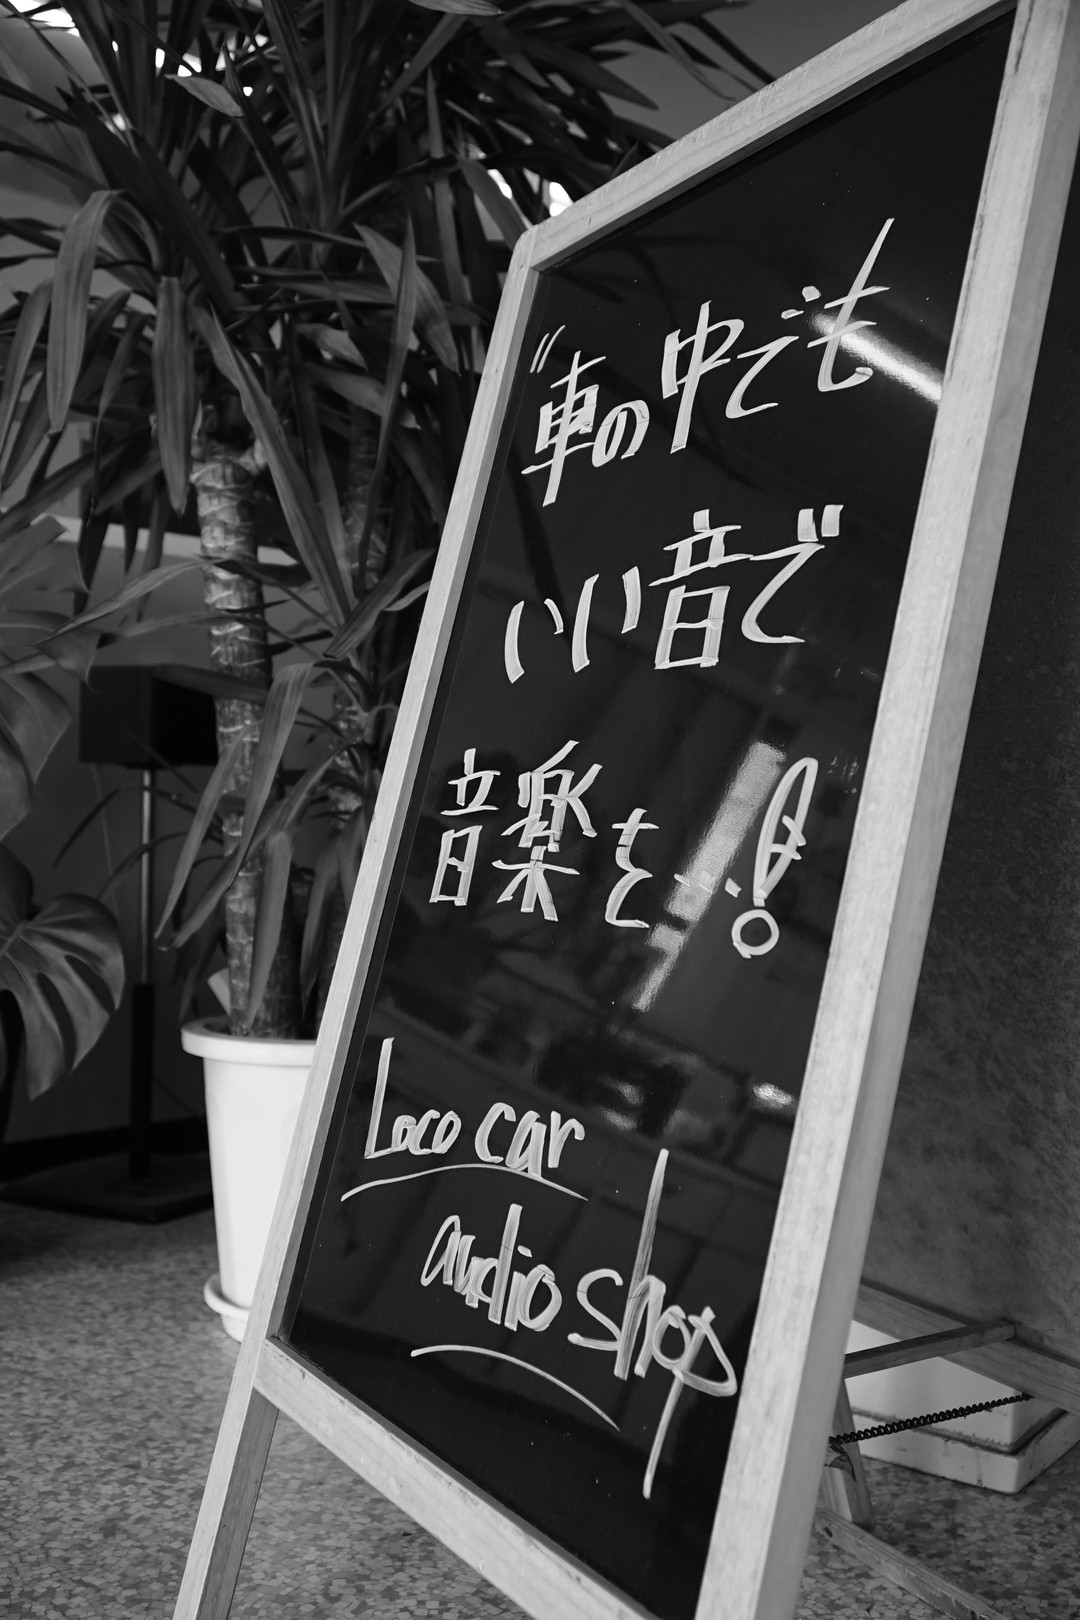 "車の中でも
いい音で
音楽を…!
Loco car
audio shop